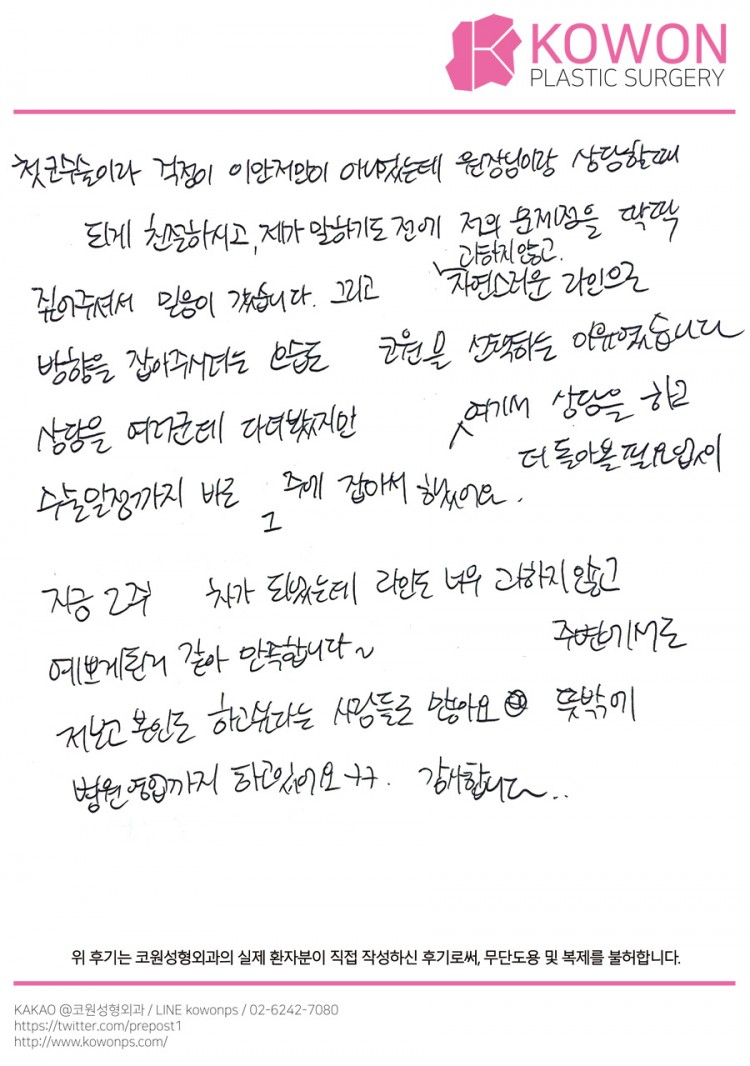 KOWON
PLASTIC SURGERY
첫코수술이라 걱정이 이만저만이 아니었는데 원장님이랑 상담할때
되게 친절하시고, 제가 말하기도 전에 저의 문제점을 딱딱
과하지 않고.
짚어주셔서 믿음이 갔습니다. 그리고 자연스러운 라인으로
방향을 잡아주시려는 모습도 코원을 선택하는 이유였습니다
상담을 여러군데 다녀봤지만 여기서 상담을 하고
더 돌아볼 필요없이
수술일정까지 바로 그 주에 잡아서 했었어요.
지금 2주 차가 되었는데 라인도 너무 과하지 않고
예쁘게된거 같아 만족합니다~ 주변에서도
저보고 본인도 하고싶다는 사람들도 많아요 뜻밖에
병원영업까지 하고있어요 ㅋㅋ. 감사합니다~..
위 후기는 코원성형외과의 실제 환자분이 직접 작성하신 후기로써, 무단도용 및 복제를 불허합니다.
KAKAO @코원성형외과 / LINE kowonps / 02-6242-7080
https://twitter.com/prepost1
http://www.kowonps.com/